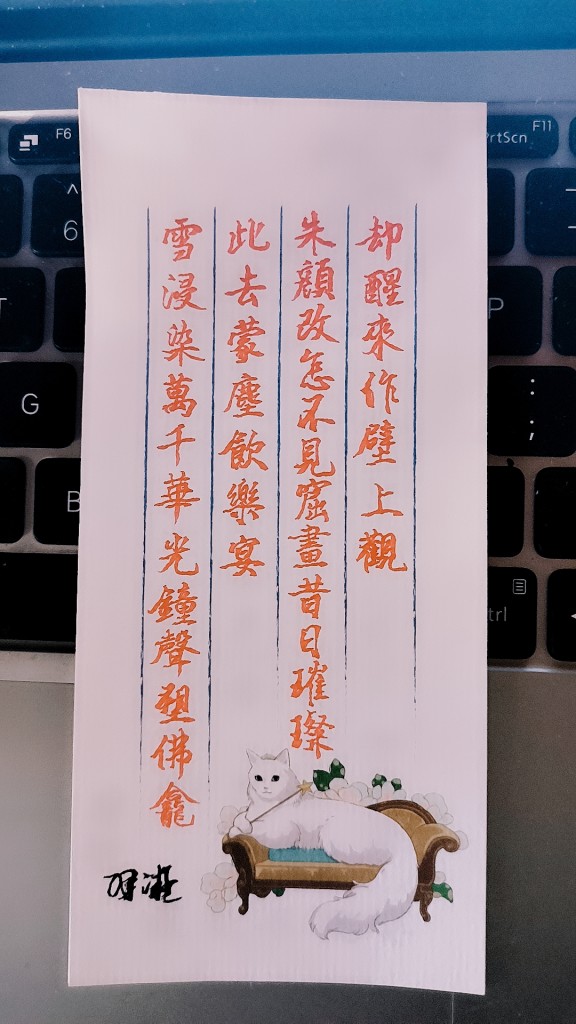 却醒來作壁上觀
朱顏改怎不見窟畫昔日璀璨
此去蒙塵飲樂宴
雪浸染萬千華光鐘聲塑佛龕
F6
^
6
T
G
B
PrtScn
F11
P
:
;
trl